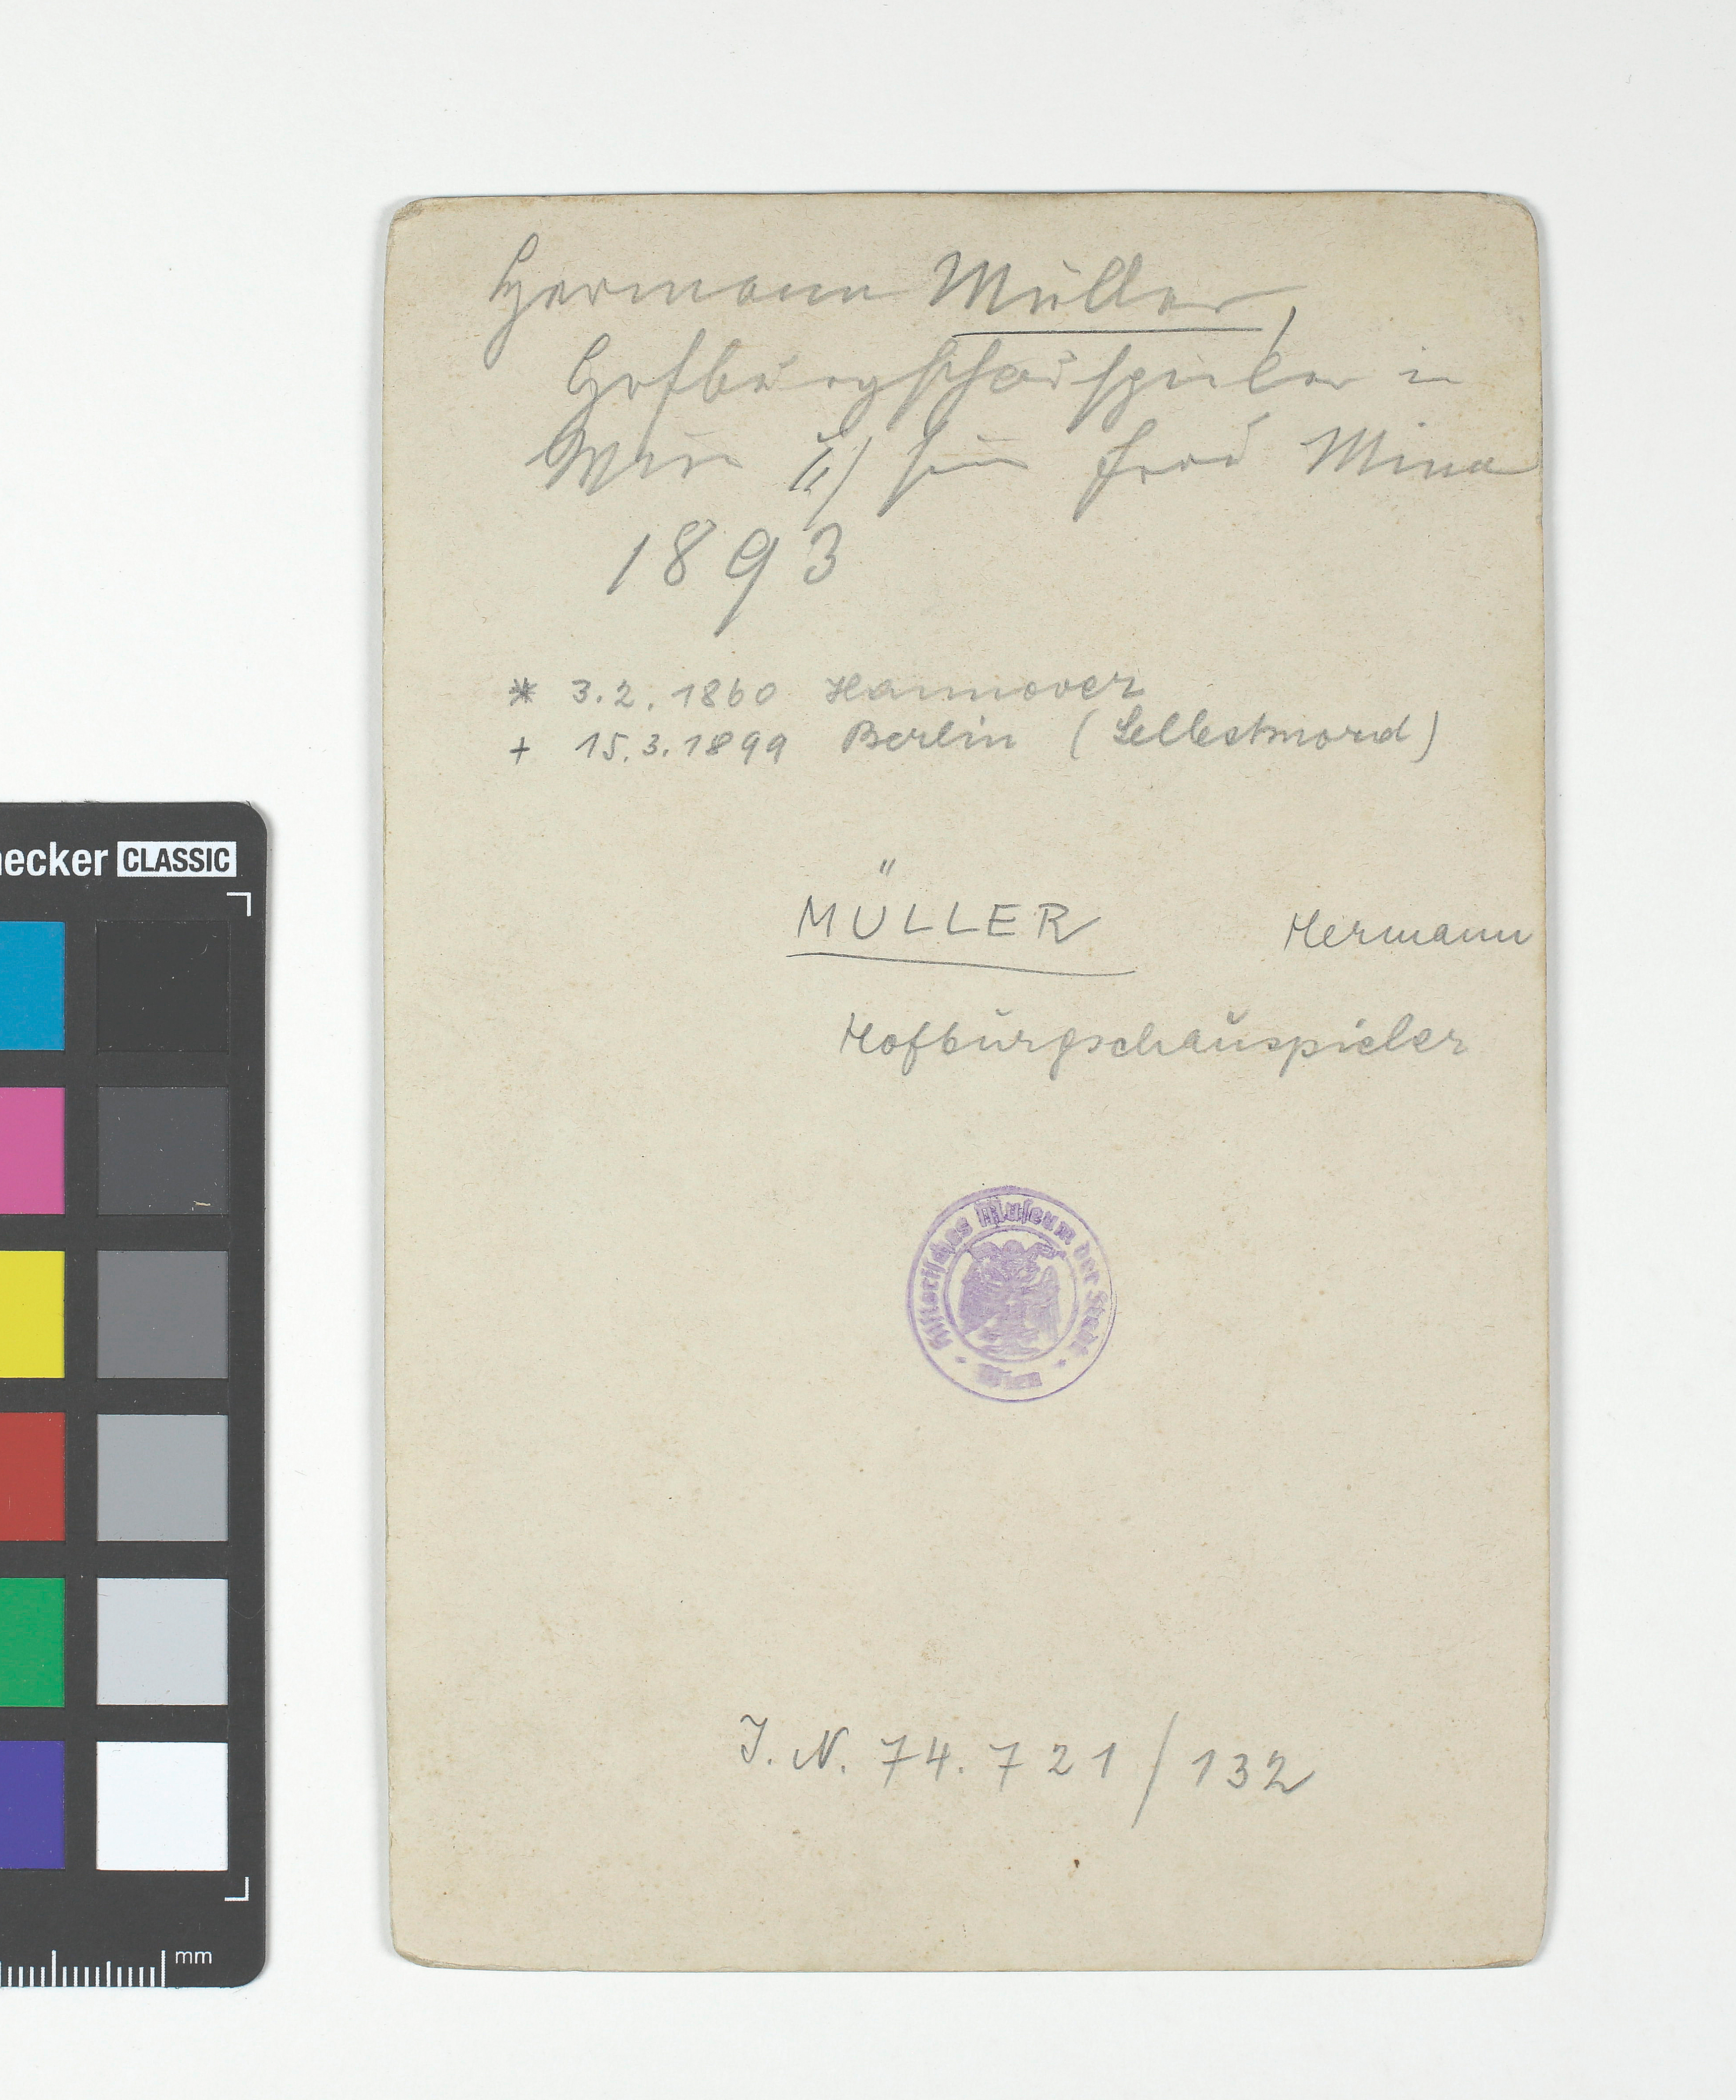 Hermann Müller,
Hofburgschauspieler in
Wien u/ sein Frau Mina
1893
* 3.2.1860 Hannover
+ 15.3.1899 Berlin (Selbstmord)
MÜLLER Hermann
Hofburgschauspieler
Historisches Museum der Stadt
Wien
J. N. 74.721/132
ecker CLASSIC
mm